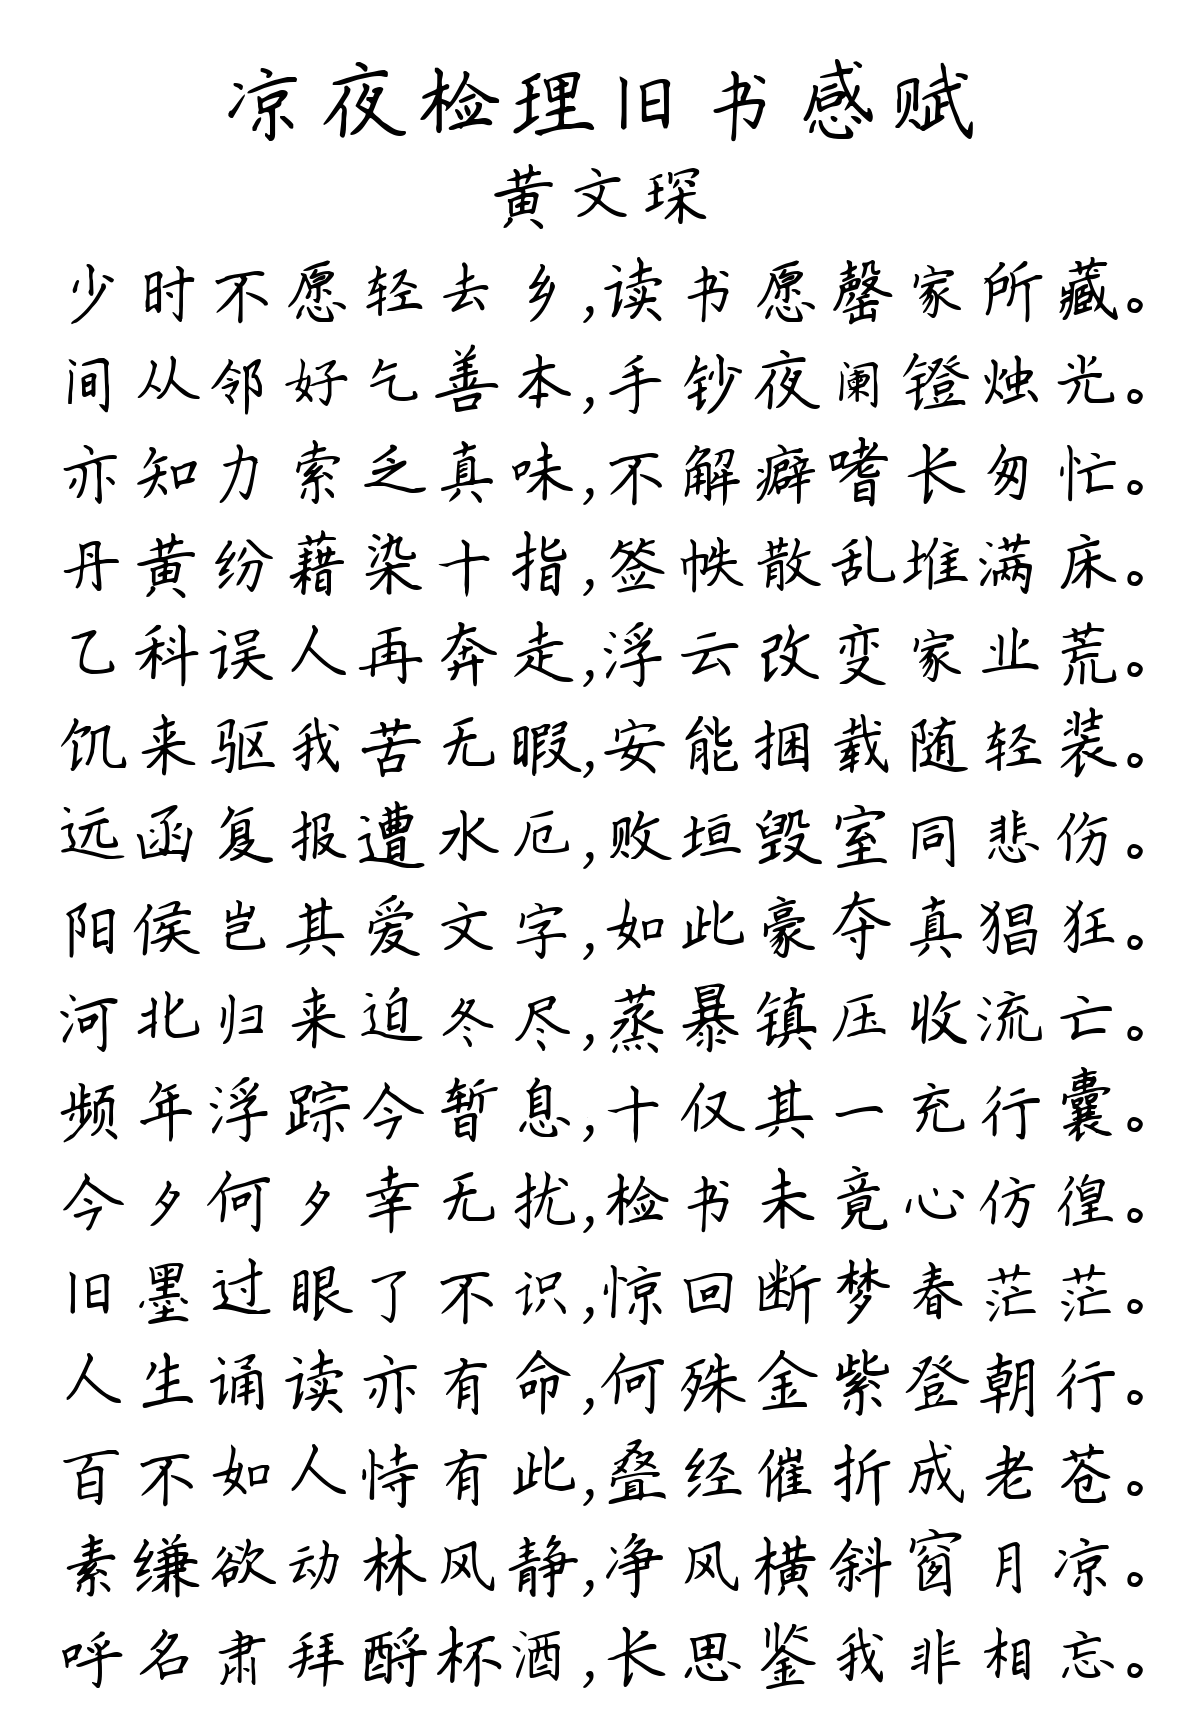 凉夜检理旧书感赋
黄文琛
少时不愿轻去乡,读书愿罄家所藏。
间从邻好乞善本,手钞夜阑镫烛光。
亦知力索乏真味,不解癖嗜长匆忙。
丹黄纷藉染十指,签帙散乱堆满床。
乙科误人再奔走,浮云改变家业荒。
饥来驱我苦无暇,安能捆载随轻装。
远函复报遭水厄,败垣毁室同悲伤。
阳侯岂其爱文字,如此豪夺真猖狂。
河北归来迫冬尽,蒸暴镇压收流亡。
频年浮踪今暂息,十仅其一充行囊。
今夕何夕幸无扰,检书未竟心仿徨。
旧墨过眼了不识,惊回断梦春茫茫。
人生诵读亦有命,何殊金紫登朝行。
百不如人恃有此,叠经催折成老苍。
素缣欲动林风静,净风横斜窗月凉。
呼名肃拜酹杯酒,长思鉴我非相忘。